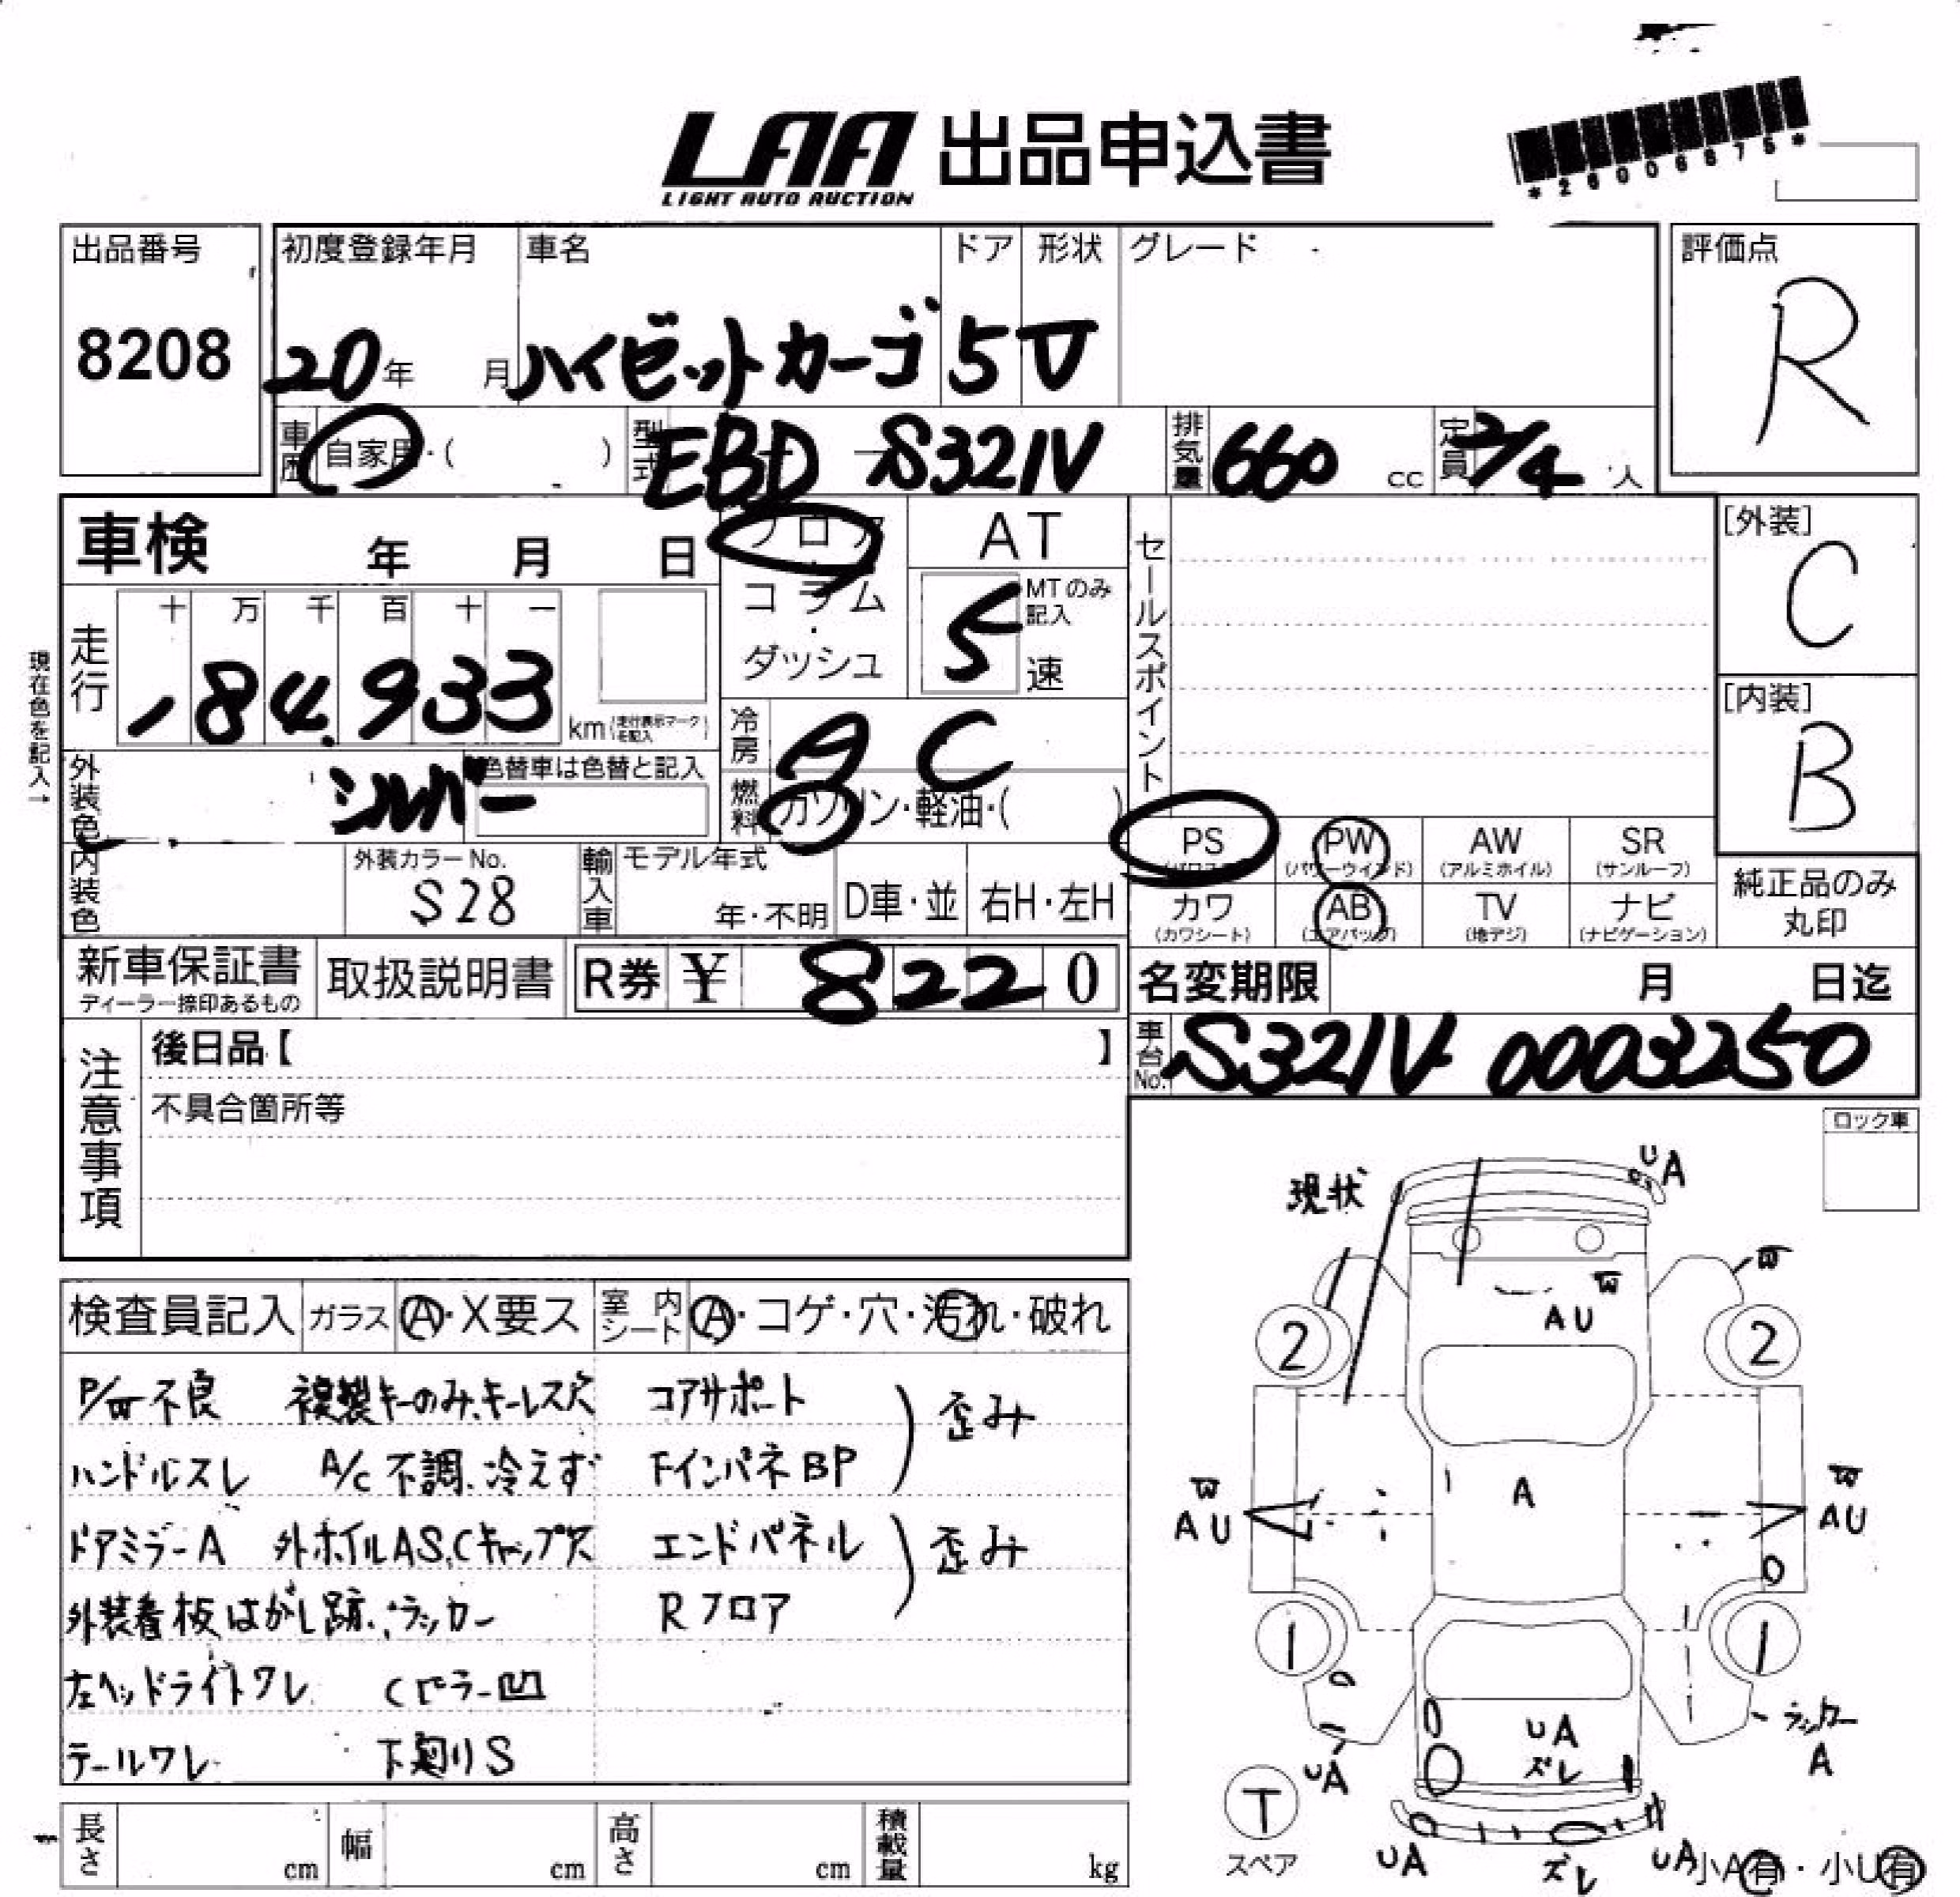 LAA 出品申込書
LIGHT AUTO AUCTION
*26006675*
出品番号
8208
初度登録年月 車名 ドア 形状 グレード
20年 月 ハイゼットカーゴ 5 V
評価点
R
車歴 自家用・( ) 型式 EBD-S321V 排気量 660 cc 定員 2/4 人
車検 年 月 日
フロア
コラム
ダッシュ
AT
MTのみ記入
5 速
セールスポイント
[外装]
C
[内装]
B
現在色を記入→
走行 十 万 千 百 十 一
184,933 km (走行表示マークを記入)
冷房 AC
外装色 シルバー 色替車は色替と記入
燃料 ガソリン・軽油・( )
PS PW AW SR
(パワステ) (パワーウインド) (アルミホイル) (サンルーフ)
カワ AB TV ナビ
(カワシート) (エアバッグ) (地デジ) (ナビゲーション)
純正品のみ
丸印
内装色 外装カラーNo. S28 輸入車 モデル年式 年・不明 D車・並 右H・左H
新車保証書 取扱説明書 R券 ¥ 8220
ディーラー捺印あるもの
名変期限 月 日迄
車台No. S321V 0003250
注意事項
後日品【 】
不具合箇所等
ロック車
検査員記入 ガラス A・X要ス 室内シート A・コゲ・穴・汚れ・破れ
P/W不良 複製キーのみ、キーレス欠 コアサポート
ハンドルスレ A/C不調、冷えず FインパネBP 歪み
ドアミラーA 外ホイルAS,Cキャップ欠 エンドパネル
外装看板はがし跡、ラッカー Rフロア 歪み
左ヘッドライトワレ Cピラー凹
テールワレ 下廻りS
現状
UA
W
W
AU
2 2
A
W
AU
W
AU
1 1
UA
ズレ
UA
ラッカー
A
T
スペア
UA ズレ UA
小A有・小U有
長さ cm 幅 cm 高さ cm 積載量 kg